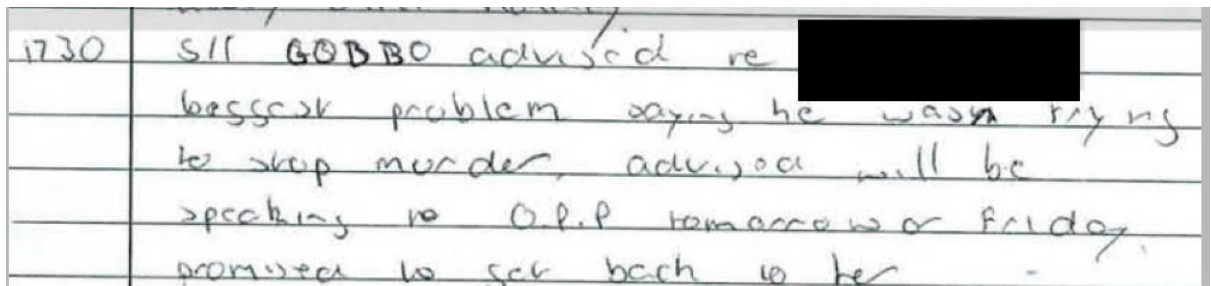 1730 S/T GOBBO advised re
biggest problem saying he wasn trying
to stop murder, advised will be
speaking to O.P.P tomorrow or Friday.
promised to get back to her